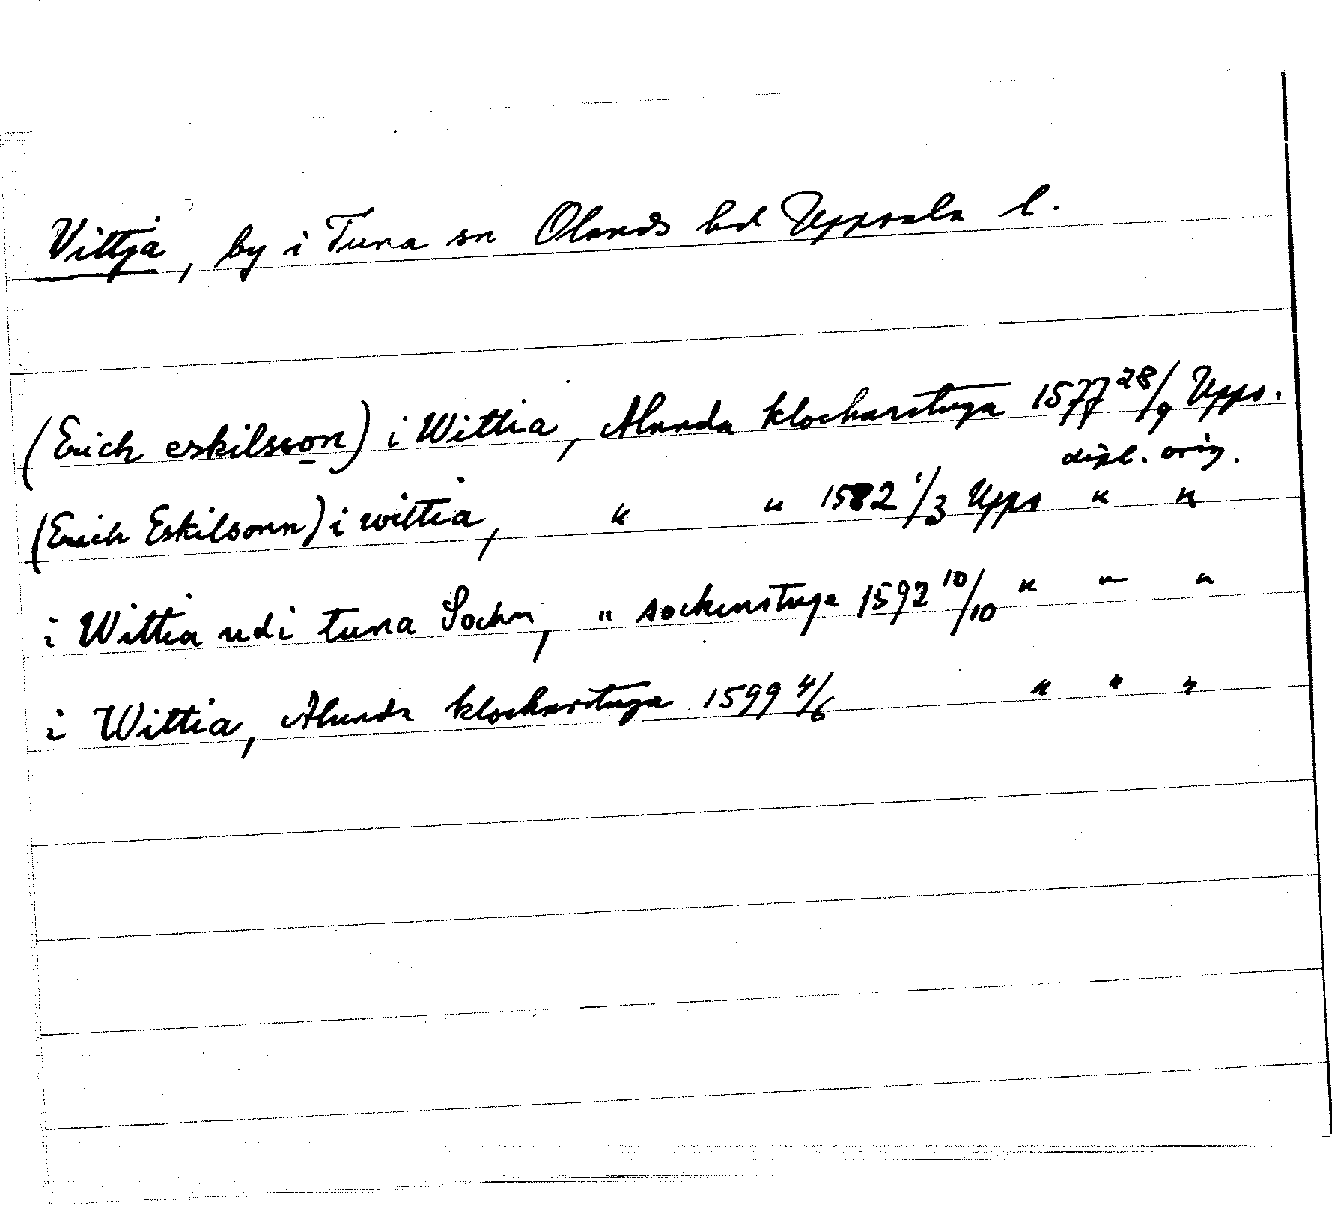 Vittja, by i Tuna sn Olands hd Uppsala l.
(Erich eskilsson) i Wittia, Alunda klockarstuga 1577 28/9 Upps.
dipl. orig.
(Erich Eskilsonn) i wittia, " " 1582 1/3 Upps " "
i Wittia udi tuna Sochn, " sockenstuga 1592 10/10 " " "
i Wittia, Alunda klockarstuga 1599 4/6 " " "